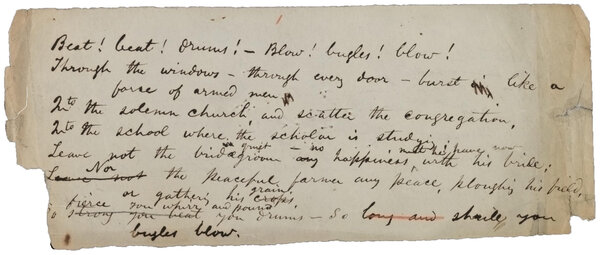 Beat! beat! drums! – Blow! bugles! blow!
Through the windows – through every door – burst in like a
force of armed men,
Into the solemn church, and scatter the congregation,
Into the school where the scholar is studying;
quiet no must he have now
Leave not the bridegroom any happiness with his bride;
Nor
Leave not the peaceful farmer any peace, ploughing his field,
or gathering his crops,
grain,
fierce you whirr and pound
So strong you beat you drums – So long and shrill you
bugles blow.